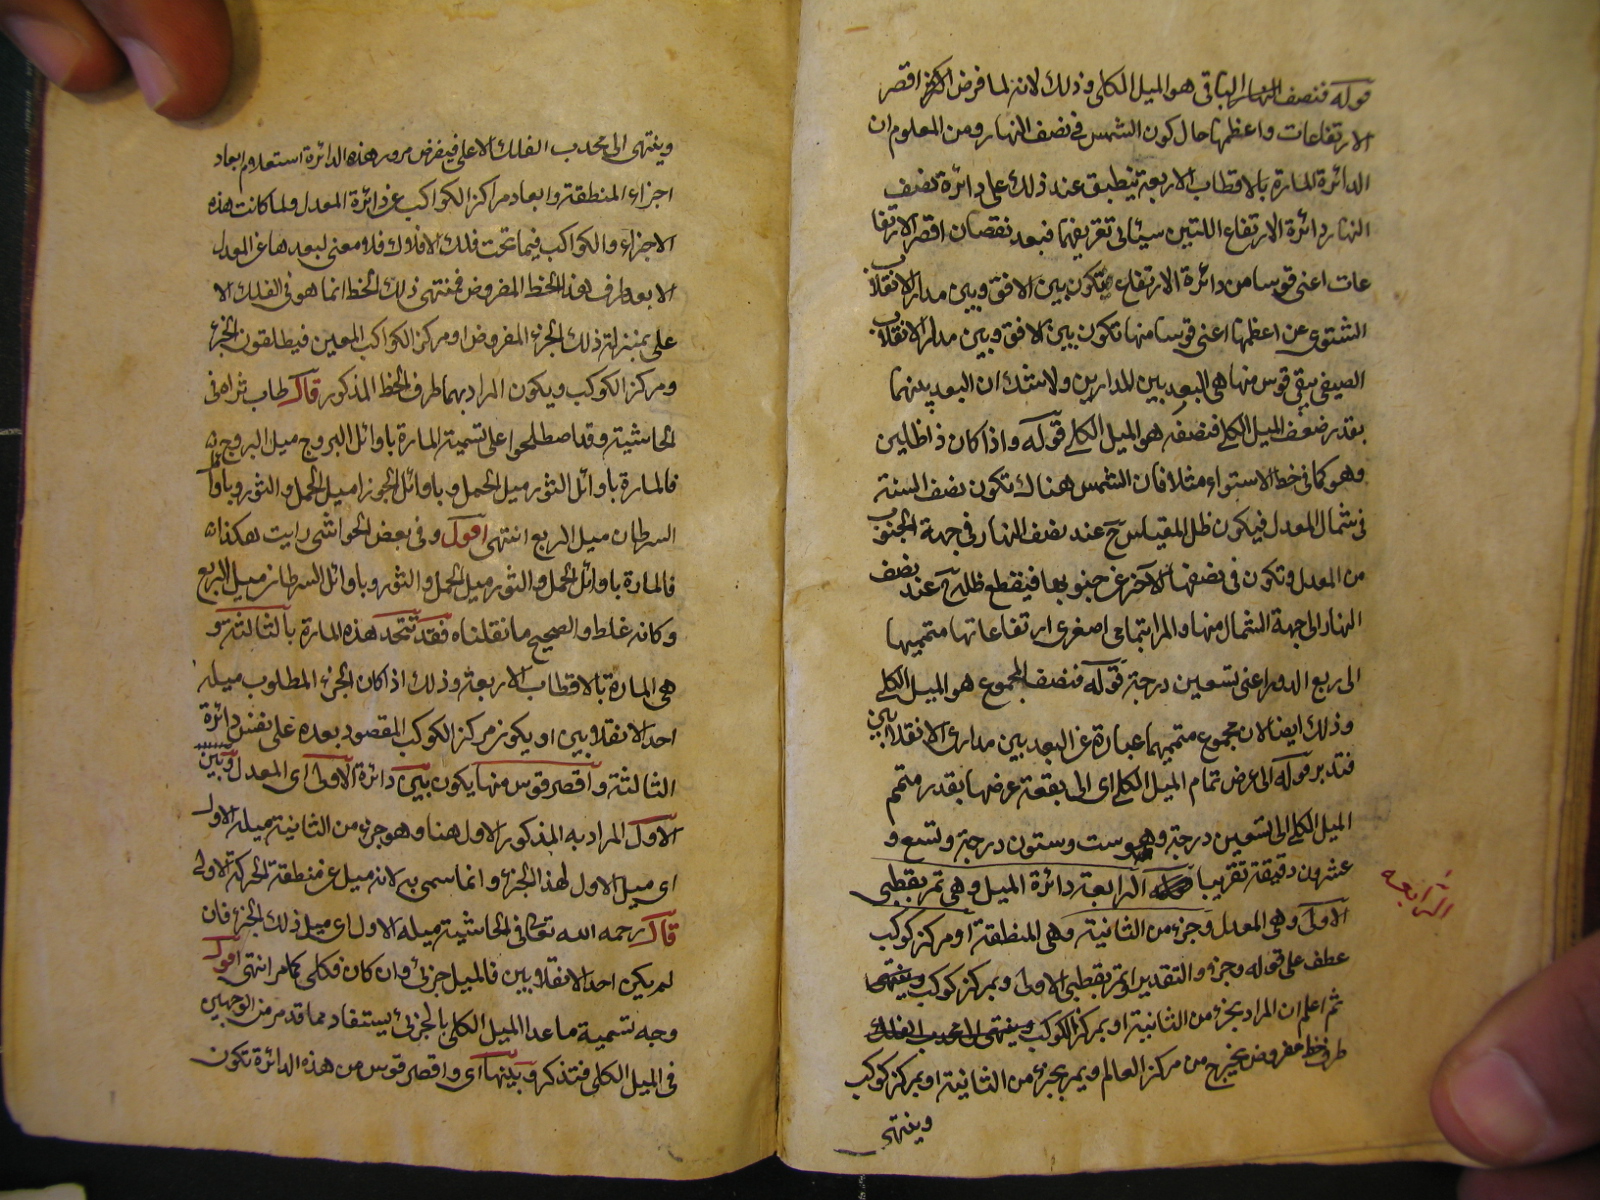 قوله فنصف النهار الباقي هو الميل الكلي وذلك لانه لما فرض اقصر
الارتفاعات واعظمها حال كون الشمس في نصف النهار ومن المعلوم ان
الدائرة المارة بالاقطاب الاربعة ينطبق عند ذلك على دائرة نصف
النهار دائرة الارتفاع اللتين سيأتي تعريفهما فبعد نقصان اقصر الارتفا
عات اعني قوسا من دائرة الارتفاع تكون بين الافق وبين مدار الانقلاب
الشتوي عن اعظمها اعني قوسا منها تكون بين الافق وبين مدار الانقلاب
الصيفي يبقى قوس منها هي البعد بين المدارين ولا شك ان البعد بينهما
بقدر ضعف الميل الكلي فنصفه هو الميل الكلي قوله واذا كان ذا ظلين
وهو كما في خط الاستواء مثلا فان الشمس هناك تكون نصف السنة
في شمال المعدل فيكون ظل المقياس ح عند نصف النهار في جهة الجنوب
من المعدل وتكون في نصفها الآخر عن جنوبها فيقطع ظله ح عند نصف
النهار الى جهة الشمال منها والمراد تمامي اصغري ارتفاعاتها متميهما
الى ربع الدور اعني تسعين درجة قوله فنصف المجموع هو الميل الكلي
وذلك ايضا لان مجموع متميهما عبارة عن البعد بين مدارى الانقلابين
فتدبر قوله الى عرض تمام الميل الكلي اي الى بقعة عرضها بقدر متمم
الميل الكلي الى تسعين درجة وهو ست وستون درجة وتسع و
عشرون دقيقة تقريبا الرابعة دائرة الميل وهي تمر بقطبي
الرابعة
الاولى وهي المعدل وجزء من الثانية وهي المنطقة او مركز كوكب
عطف على قوله وجزء والتقدير او تمر بقطبي الاولى وبمركز كوكب وينتهي
ثم اعلم ان المراد بجزء من الثانية او بمركز الكوكب
طرف خط مفروض يخرج من مركز العالم ويمر بجزء من الثانية او بمركز كوكب
وينتهي
وينتهي الى محدب الفلك الاعلى فيفرض مرور هذه الدائرة استعلام ابعاد
اجزاء المنطقة وابعاد مراكز الكواكب عن دائرة المعدل ولما كانت هذه
الاجزاء والكواكب فيما تحت فلك الافلاك فلا معنى لبعدها عن المعدل
الا بعد طرف هذا الخط المفروض فمنتهى ذلك الخط انما هو في الفلك الا
على بمنزلة ذلك الجزء المفروض او مركز الكواكب المعين فيطلقون الجزء
ومركز الكوكب ويكون المراد بهما طرف الخط المذكور قال طاب ثراه في
الحاشية وقد اصطلحوا على تسمية المارة باوائل البروج ميل البروج
فالمارة باوائل الثور ميل الحمل وباوائل الجوزا ميل الحمل والثور وباوا
السرطان ميل الربع انتهى اقول وفي بعض الحواشي رايت هكذا
فالمارة باوائل الحمل والثور ميل الحمل والثور وباوائل السرطان ميل الربع
وكانه غلط والصحيح ما نقلناه فقد تتحد هذه المارة بالثالثة
هي المارة بالاقطاب الاربعة وذلك اذا كان الجزء المطلوب ميله
احد الانقلابين او يكون مركز الكوكب المقصود بعده على نفس دائرة
الثالثة واقصر قوس منها يكون بين دائرة الاولى اي المعدل وبين
الاول المراد به المذكور الاول هنا وهو جزء من الثانية ميله الاول
اي ميل الاول لهذا الجزء وانما سمي به لانه ميل عن منطقة الحركة الاولى
قال رحمه الله تعالى في الحاشية ميله الاول اي ميل ذلك الجزء فان
لم يكن احد الانقلابين فالميل جزئي وان كان فكلي كما مر انتهى اقول
وجه تسمية ما عدا الميل الكلي بالجزئي يستفاد مما قد مر من الوجهين
في الميل الكلي فتذكر وبينها اي واقصر قوس من هذه الدائرة تكون